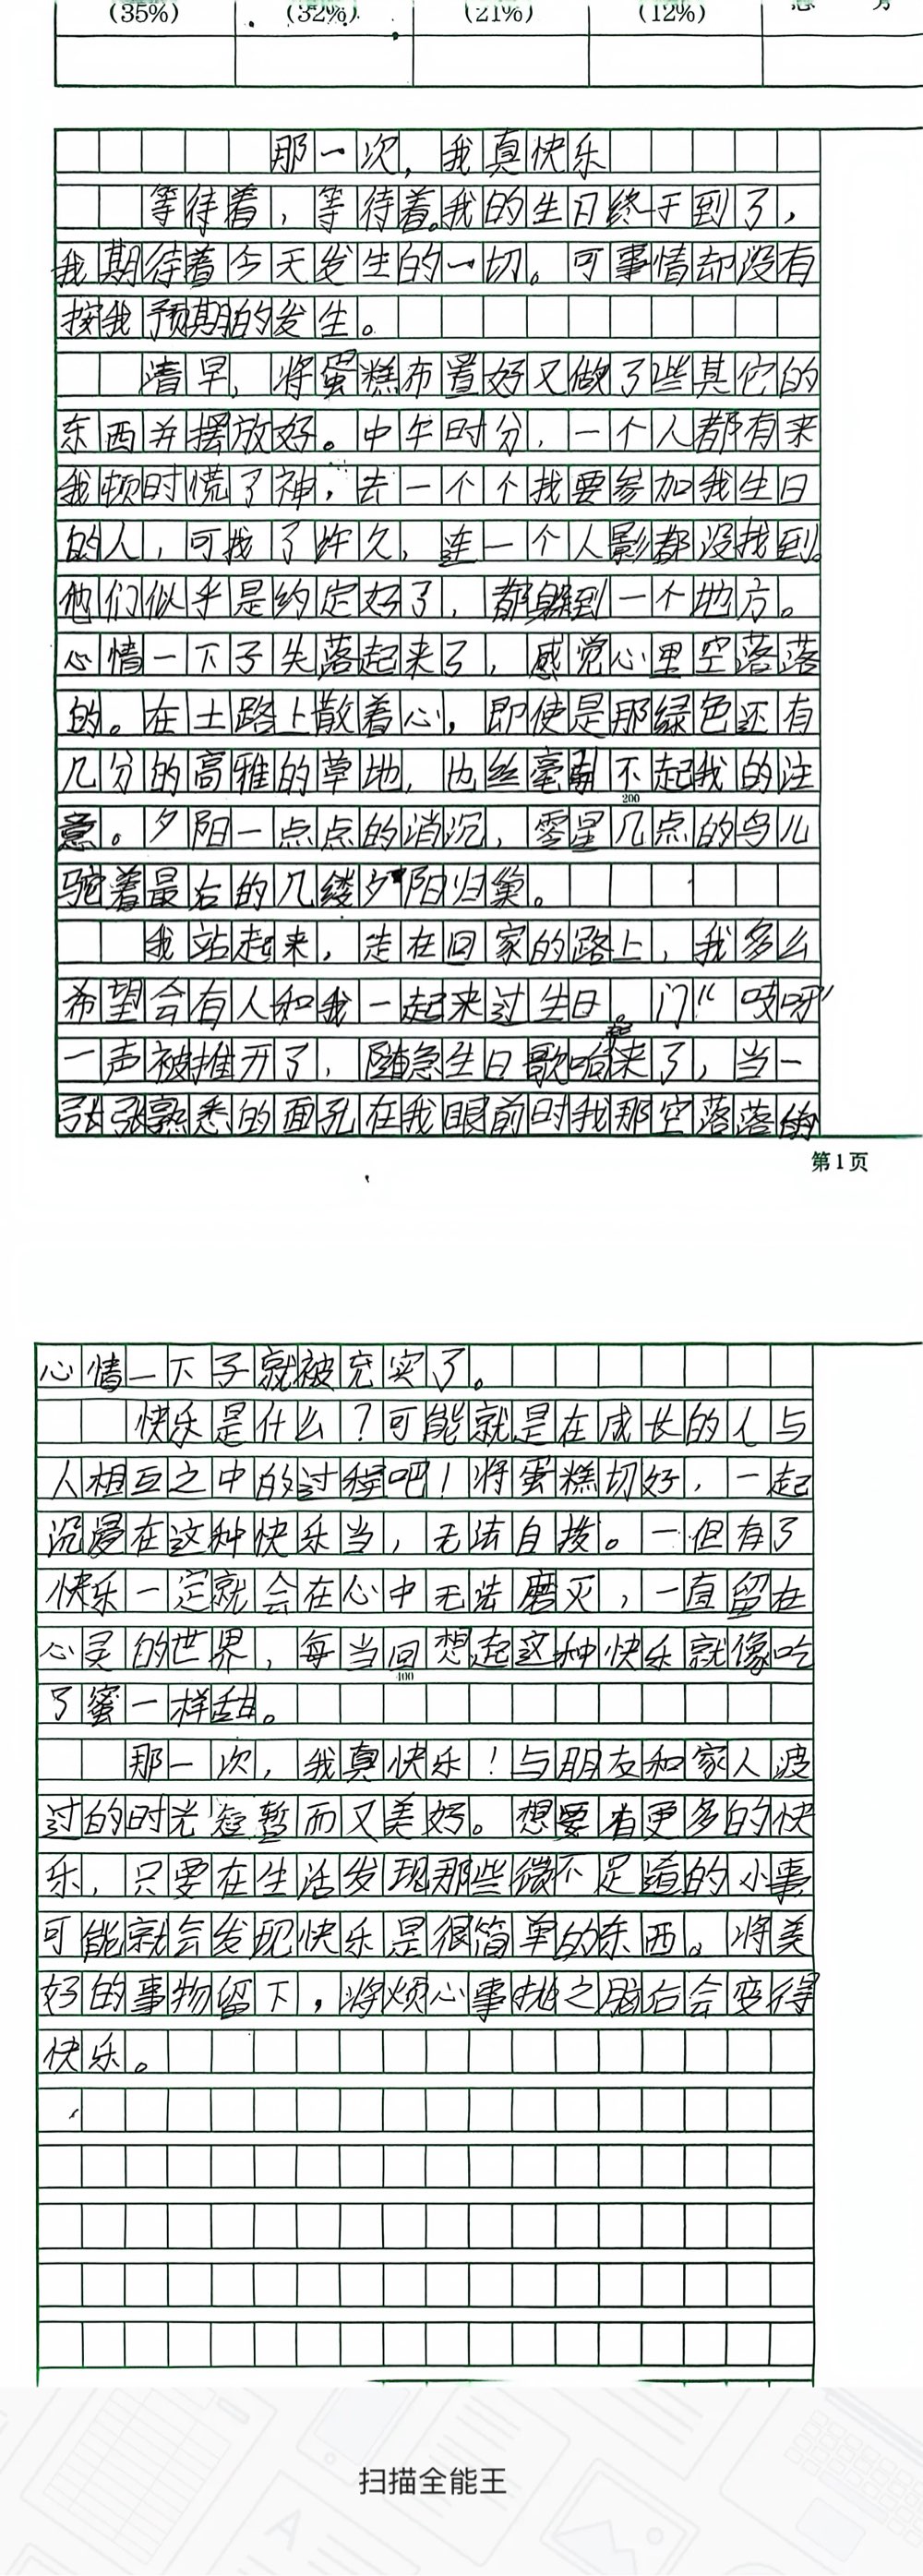 (35%) (32%) (21%) (12%)
那一次，我真快乐
等待着，等待着。我的生日终于到了，
我期待着今天发生的一切。可事情却没有
按我预期的发生。
清早，将蛋糕布置好又做了些其它的
东西并摆放好。中午时分，一个人都有来
我顿时慌了神，去一个个找要参加我生日
的人，可找了许久，连一个人影都没找到。
他们似乎是约定好了，都躲到一个地方。
心情一下子失落起来了，感觉心里空落落
的。在土路上散着心，即使是那绿色还有
几分的高雅的草地，也丝毫不起我的注
200
意。夕阳一点点的消沉，零星几点的鸟儿
驼着最后的几缕夕阳归巢。
我站起来，走在回家的路上，我多么
希望会有人和我一起来过生日。门“吱呀”
一声被推开了，随急生日歌响起来了，当一
张张熟悉的面孔在我眼前时我那空落落的
第1页
心情一下子就被充实了。
快乐是什么？可能就是在成长的人与
人相互之中的过程吧！将蛋糕切好，一起
沉浸在这种快乐当，无法自拔。一但有了
快乐一定就会在心中无法磨灭，一直留在
心灵的世界，每当回想起这种快乐就像吃
400
了蜜一样甜。
那一次，我真快乐！与朋友和家人渡
过的时光短暂而又美好。想要有更多的快
乐，只要在生活发现那些微不足道的小事
可能就会发现快乐是很简单的东西。将美
好的事物留下，将烦心事抛之脑后会变得
快乐。
扫描全能王